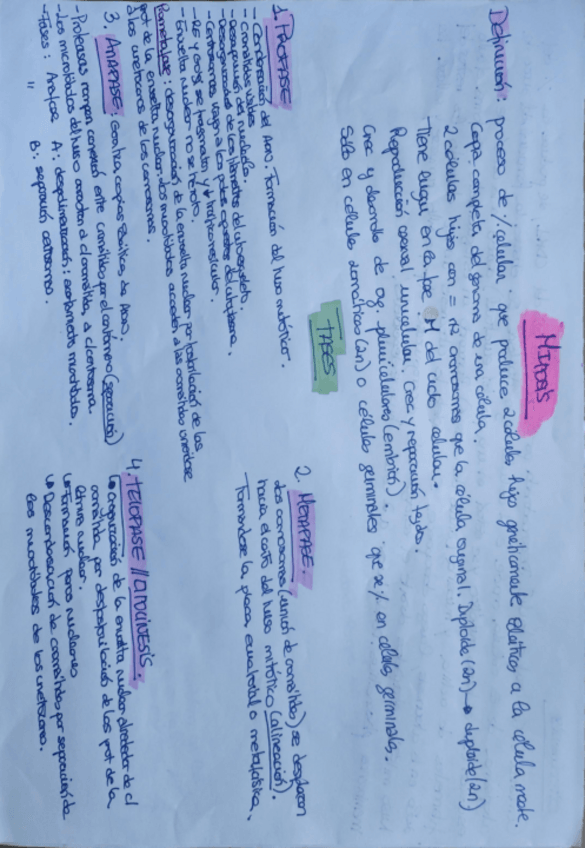 MITOSIS
Definición: proceso de % celular que produce 2 células hijo genéticamente idénticas a la célula madre.
Copia completa del genoma de una célula.
2 células hijas con = nº cromosomas que la célula original. Diploide (2n) → diploide (2n)
- Tiene lugar en la fase M del ciclo celular.
Reproducción asexual unicelular. Crec y reparación tejidos.
Crec y desarrollo de org pluricelulares (embrión).
Sólo en células somáticas (2n) o células germinales que se % en células germinales.
FASES
1. PROFASE
- Condensación del ADN. Formación del huso mitótico.
- Cromátidas visibles
- Desaparición del nucleolo.
- Desorganización de los filamentos del citoesqueleto.
- Centrosomas viajan a los polos opuestos del citoplasma.
- RE y Golgi se fragmentan y ↓ tráfico vesicular.
- Envuelta nuclear no se ha roto.
Prometafase: desorganización de la envuelta nuclear por fosforilación de las
prot de la envuelta nuclear. Los microtúbulos acceden a las cromátidas uniéndose
a los cinetocoros de los cromosomas.
2. METAFASE.
Los cromosomas (unión de cromátidas) se desplazan
hacia el centro del huso mitótico (alineación).
Formándose la placa ecuatorial o metafásica.
3. ANAFASE: Garantiza copias idénticas de ADN
- Proteasas rompen conexión entre cromátidas por el centrómero (separación)
- Los microtúbulos del huso arrastran al cromátida, a c/centrosoma.
- Fases: Anafase A: despolimerización: acortamiento microtúbulos.
" B: separación centrosomas.
4. TELOFASE // CITOCINESIS.
↳ Organización de la envuelta nuclear alrededor de c/
cromátida por desfosforilación de las prot de la
lámina nuclear.
↳ Formación poros nucleares
↳ Descondensación de cromátidas por separación de
los microtúbulos de los cinetocoros.